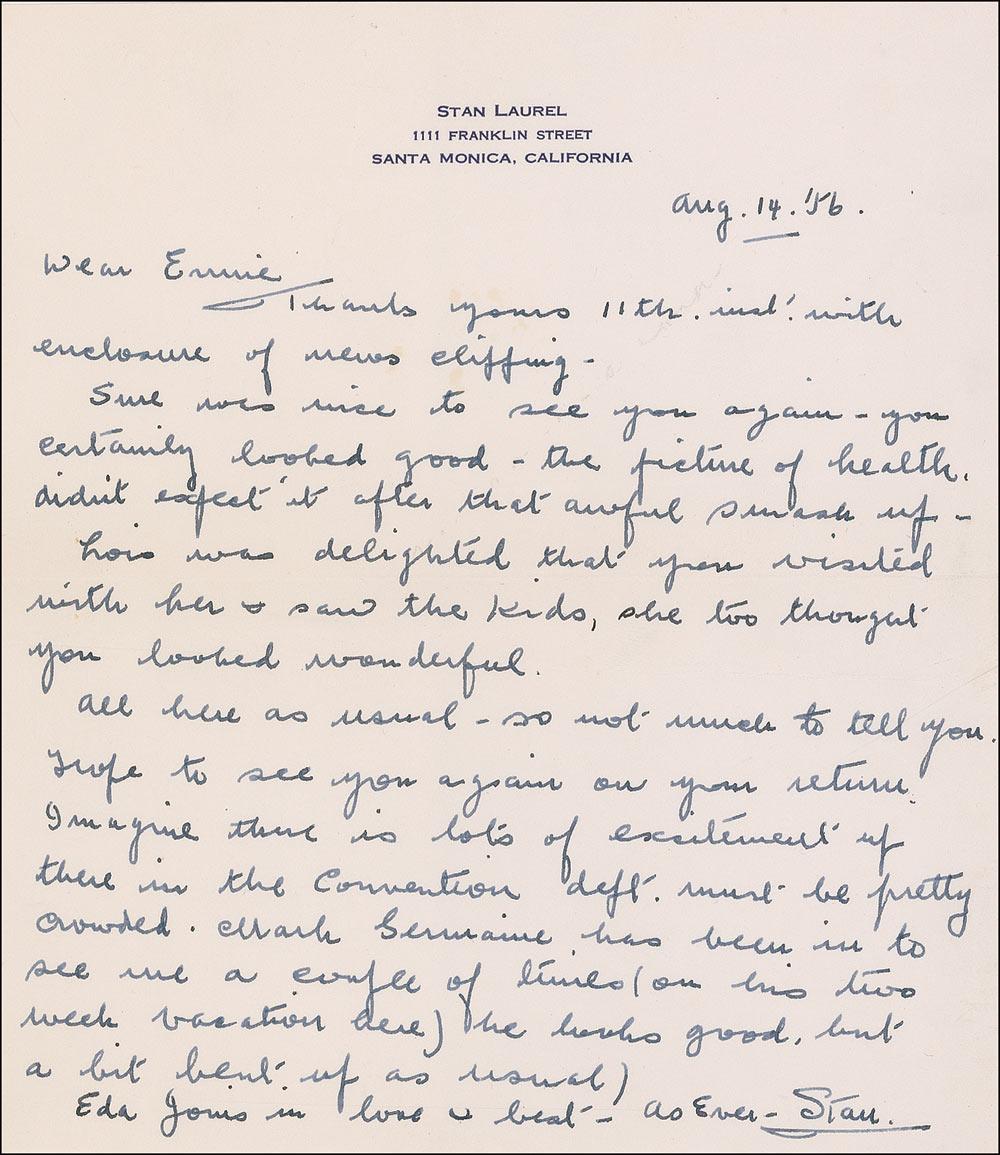 STAN LAUREL
1111 FRANKLIN STREET
SANTA MONICA, CALIFORNIA
Aug. 14. '56.
Dear Ernie
Thanks yours 11th. inst. with
enclosure of news clipping -
Sure was nice to see you again - you
certainly looked good - the picture of health.
didn't expect it after that awful smash up -
Lois was delighted that you visited
with her & saw the kids, she too thought
you looked wonderful.
All here as usual - so not much to tell you.
Hope to see you again on your return.
Imagine there is lots of excitement up
there in the Convention dept. must be pretty
crowded. Mark Germaine has been in to
see me a couple of times (on his two
week vacation here) he looks good, but
a bit bent up as usual)
Eda Joins in love & best - As Ever - Stan.